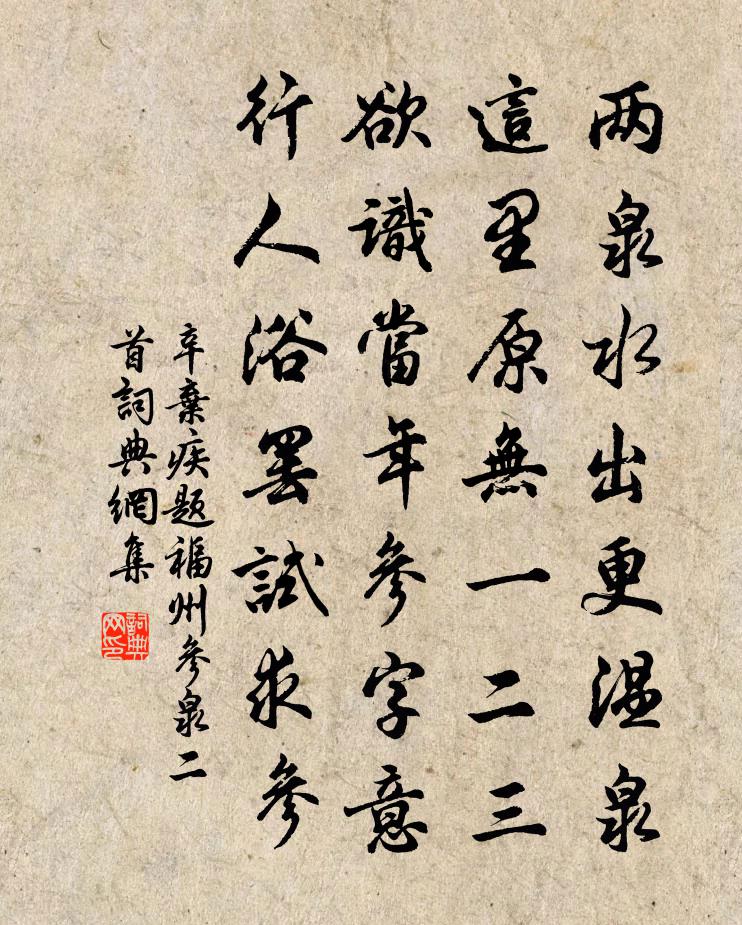 两泉水出更温泉
這里原無一二三
欲識當年參字意
行人浴罢試求參
辛棄疾题福州參泉二
首詞典網集
詞典网印